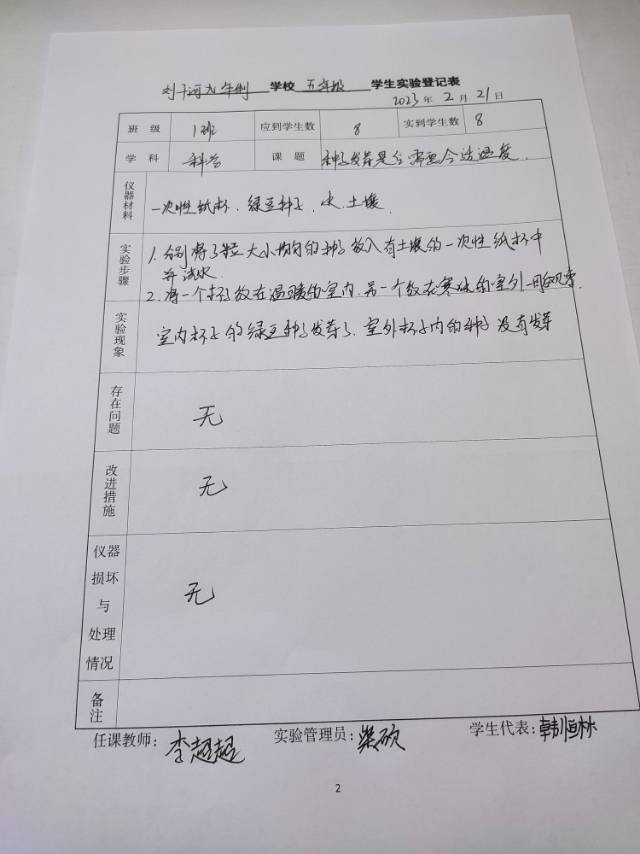 刘千河九年制 学校 五年级 学生实验登记表
2023年2月21日
班级 1班 应到学生数 8 实到学生数 8
学科 科学 课题 种子发芽是否需要合适温度
仪器材料 一次性纸杯、绿豆种子、水、土壤
实验步骤 1. 分别将3粒大小均匀的种子放入有土壤的一次性纸杯中
并浇水
2. 将一个杯子放在温暖的室内,另一个放在寒冷的室外
实验现象 室内杯子的绿豆种子发芽了,室外杯子内的种子没有发芽
存在问题 无
改进措施 无
仪器损坏与处理情况 无
备注
任课教师:李超超 实验管理员:柴欣 学生代表:韩恒林
2